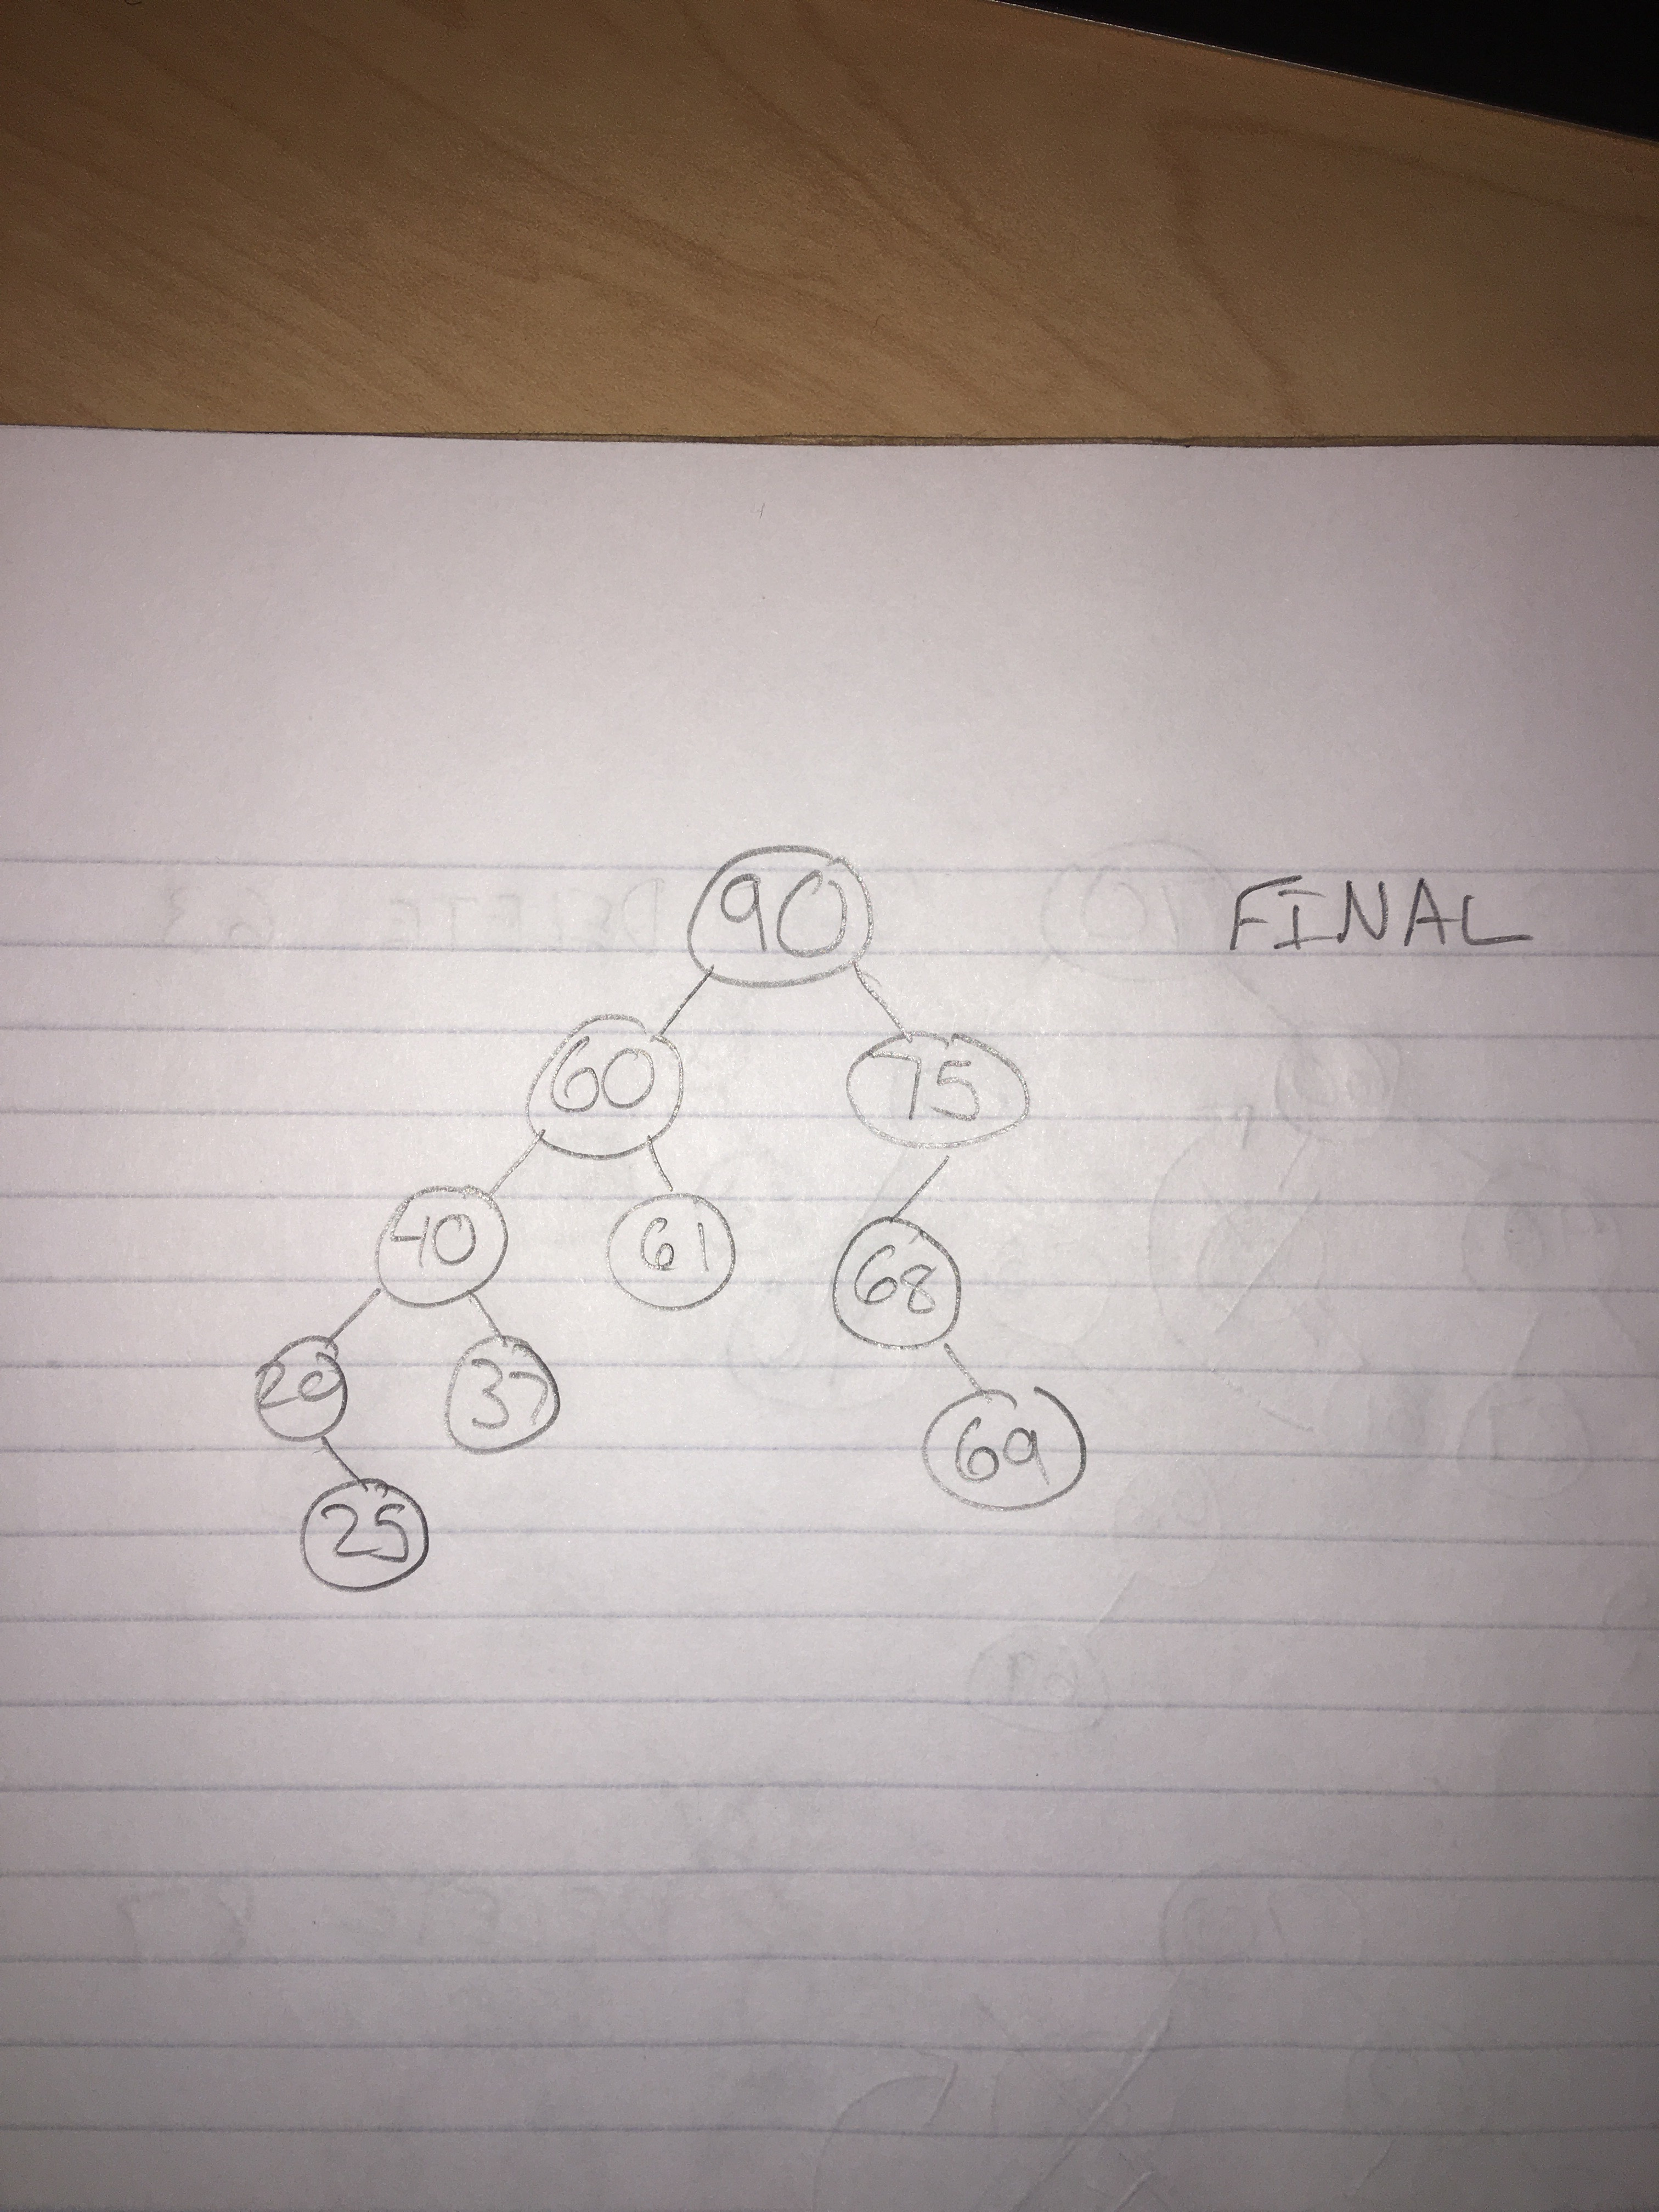 90 FINAL
60 75
40 61 68
20 37 69
25